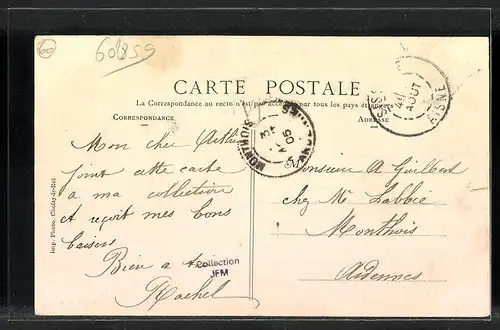 60
60859
CARTE POSTALE
La Correspondance au recto n'est pas acceptée par tous les pays étrangers
CORRESPONDANCE
ADRESSE
AOUT
AISNE
ARDENNES
05
Mon cher Arthur
joint cette carte
a ma collection
et reçoit mes bons
baisers
Bien a toi
Rachel
Monsieur A Guilbert
chez Mr Labbie
Monthois
Ardennes
Collection
JFM